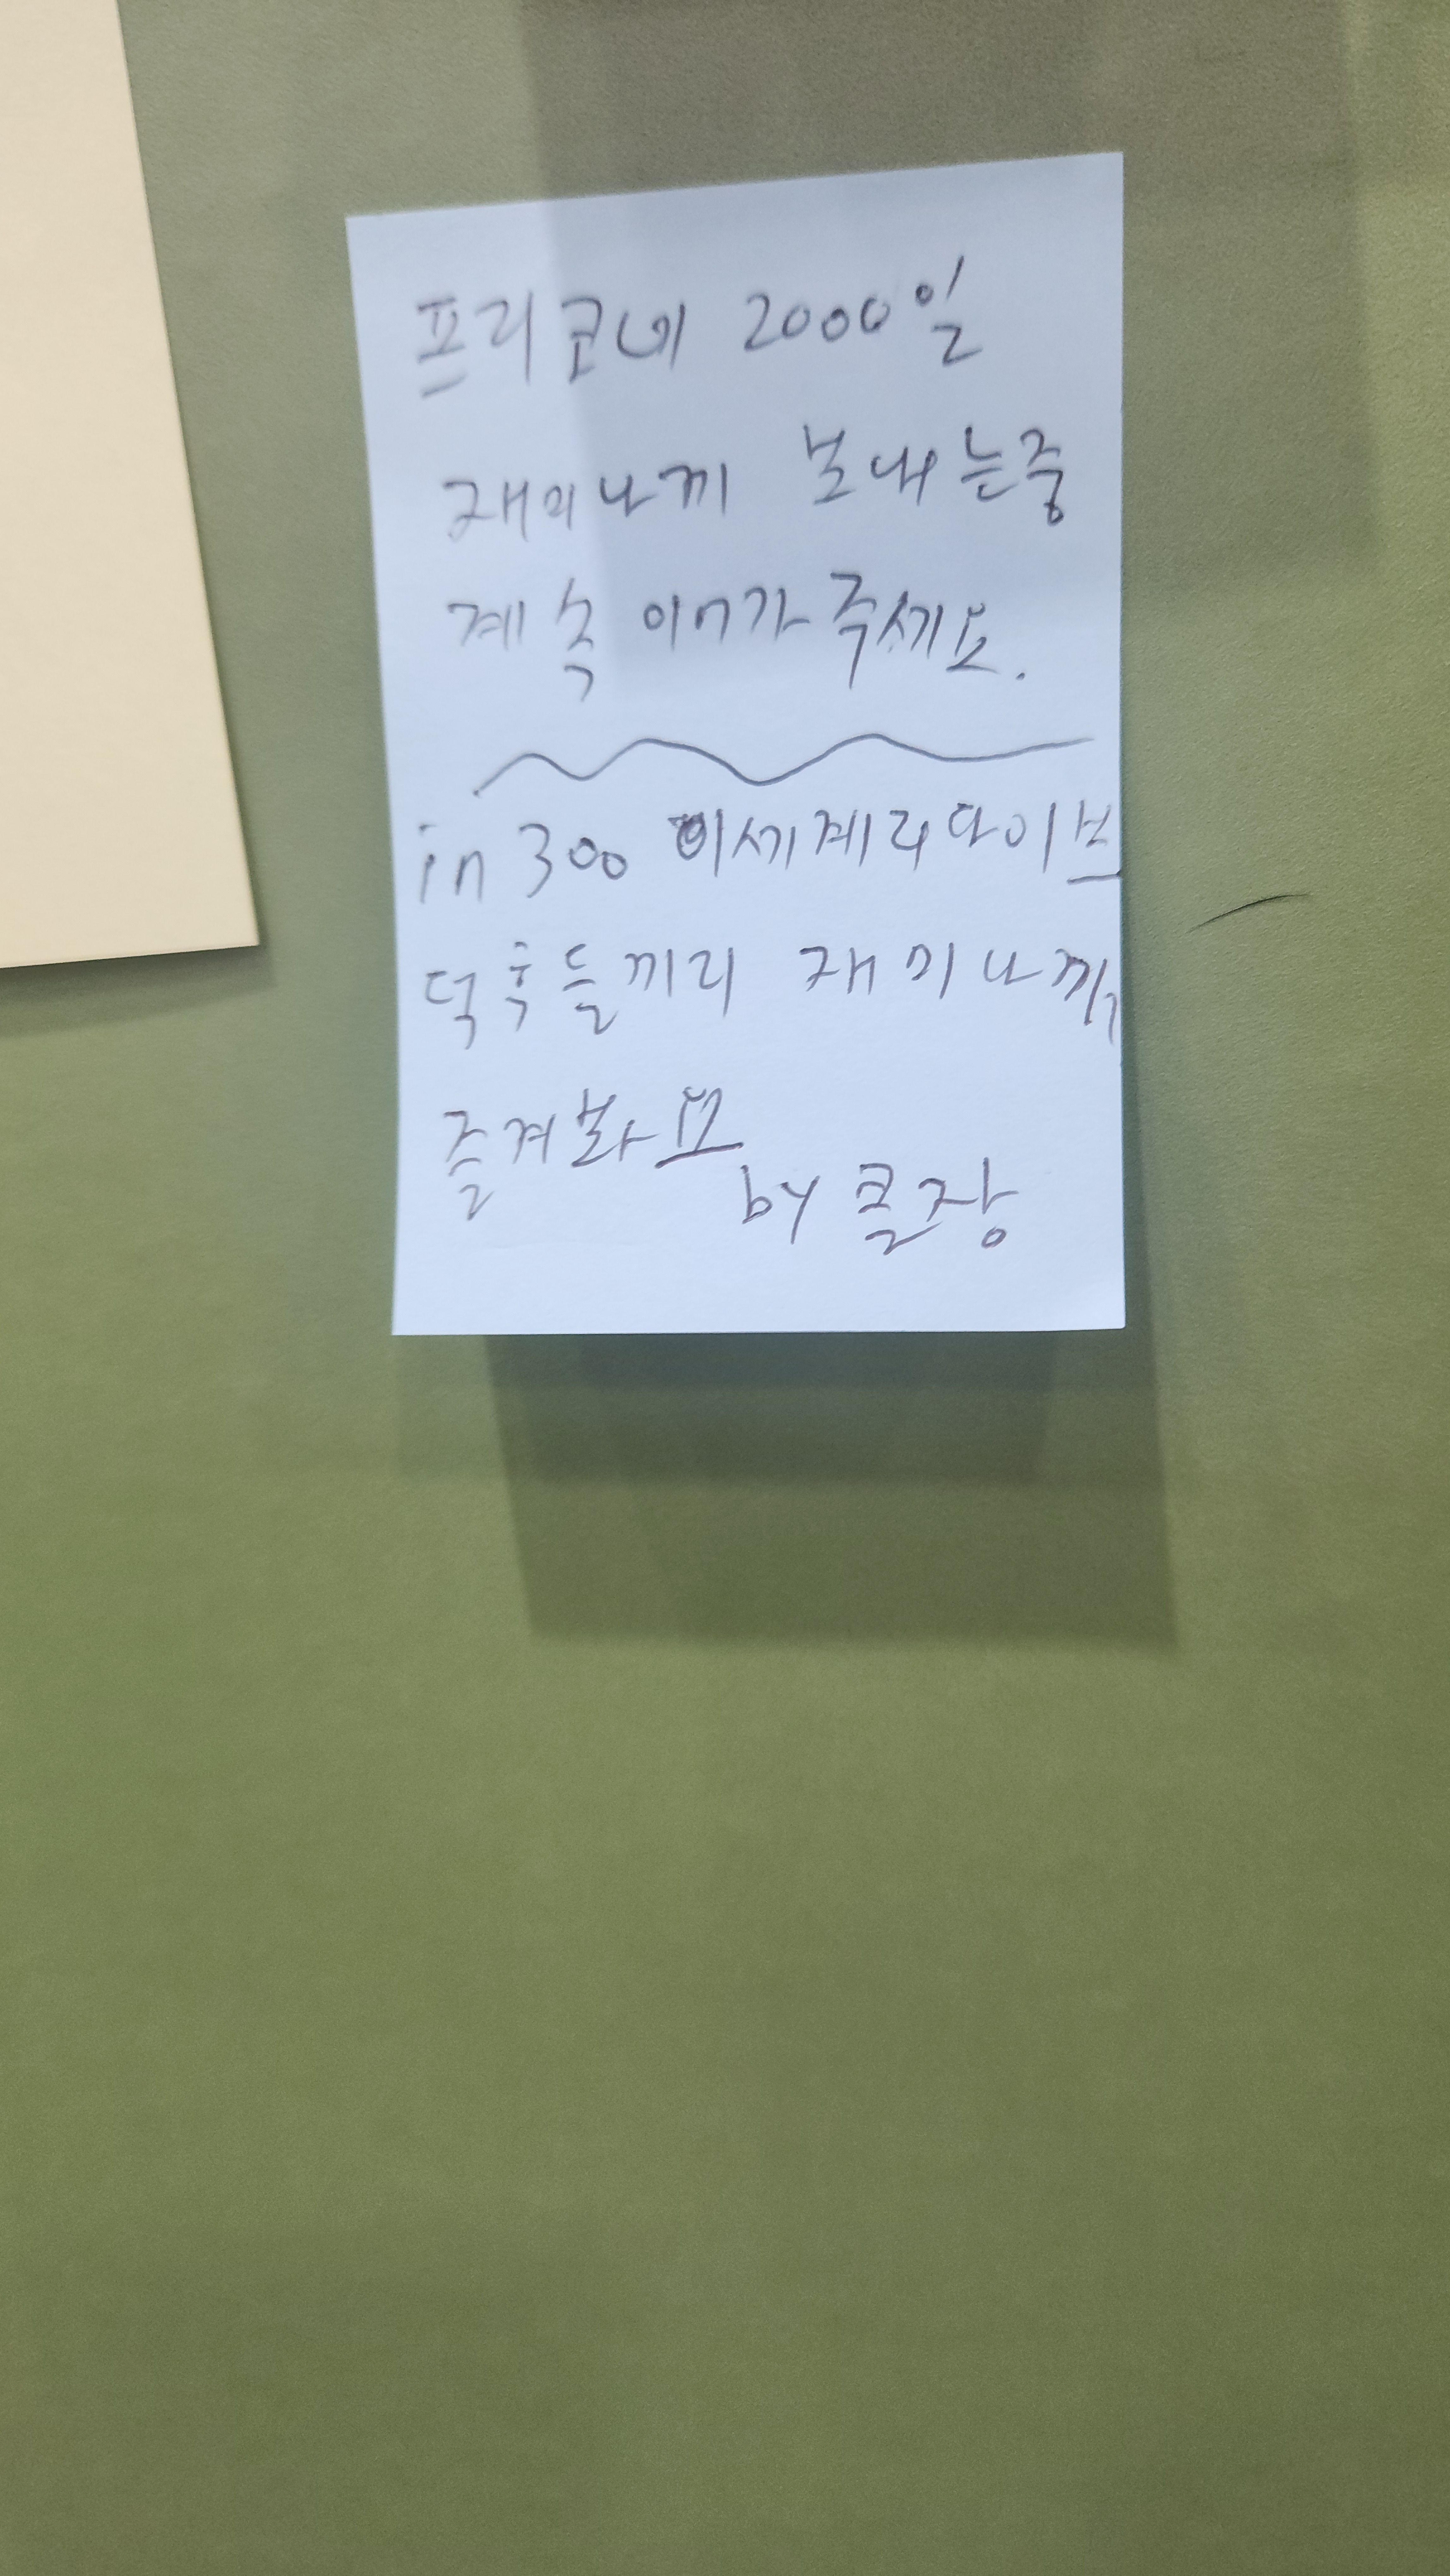 프리코네 2000일
재미나끼 보내는중
계속 이어가주세요.
in 300 이세계리다이브
덕후들끼리 재미나끼
즐겨봐요
by 쿨장